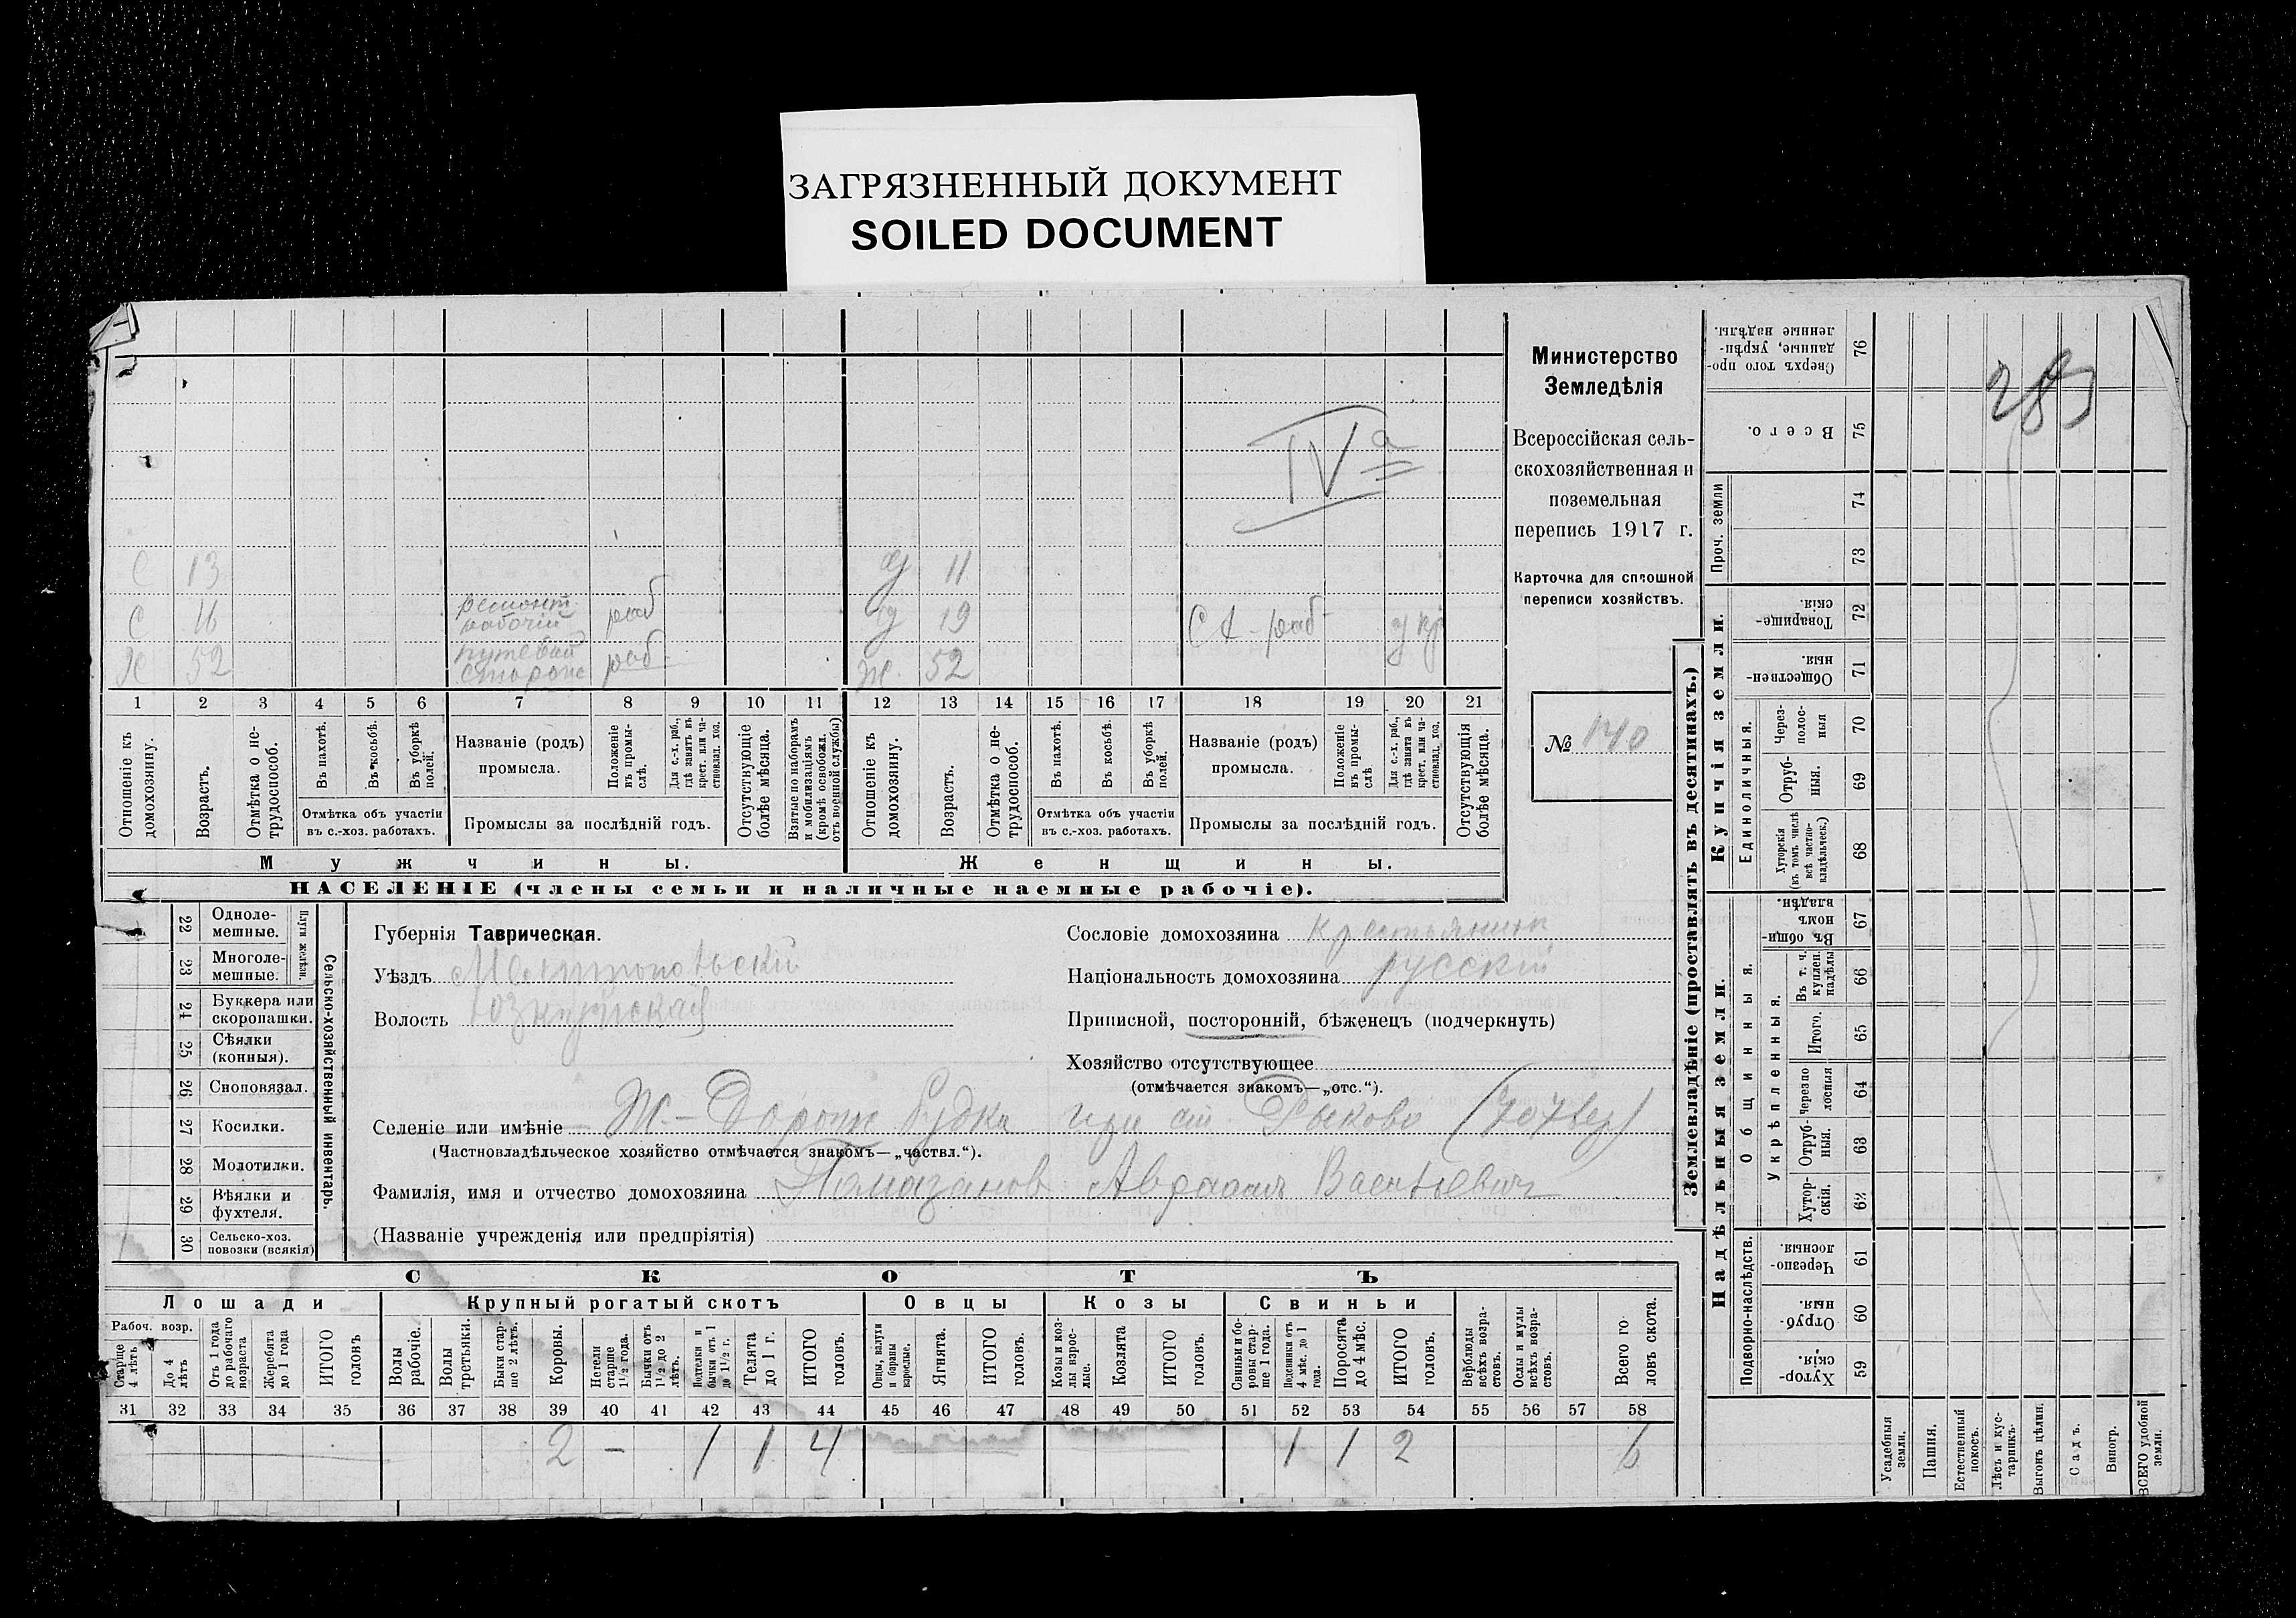 ЗАГРЯЗНЕННЫЙ ДОКУМЕНТ
SOILED DOCUMENT
IV а
С 13
д 11
С 16 ремонт. рабочій раб
д 19 С х - раб укр
Х 52 путевой сторож раб
ж. 52
1 2 3 4 5 6 7 8 9 10 11 12 13 14 15 16 17 18 19 20 21
Отношеніе къ домохозяину.
Возрастъ.
Отмѣтка о нетрудоспособ.
Въ пахотѣ.
Въ косьбѣ.
Въ уборкѣ полей.
Отмѣтка объ участіи въ с.-хоз. работахъ.
Названіе (родъ) промысла.
Положеніе въ промыслѣ.
Для с.-х. раб., гдѣ занятъ въ крест. или частновлад. хоз.
Промыслы за послѣдній годъ.
Отсутствующіе болѣе мѣсяца.
Взятые по наборамъ и мобилизаціямъ (кромѣ освобожд. отъ военной службы)
Отношеніе къ домохозяину.
Возрастъ.
Отмѣтка о нетрудоспособ.
Въ пахотѣ.
Въ косьбѣ.
Въ уборкѣ полей.
Отмѣтка объ участіи въ с.-хоз. работахъ.
Названіе (родъ) промысла.
Положеніе въ промыслѣ
Для с.-х. раб., гдѣ занята въ крест. или частновлад. хоз.
Промыслы за послѣдній годъ.
Отсутствующія болѣе мѣсяца.
Мужчины.
Женщины.
НАСЕЛЕНІЕ (члены семьи и наличные наемные рабочіе).
Министерство
Земледѣлія
Всероссійская сель-
скохозяйственная и
поземельная
перепись 1917 г.
Карточка для сплошной
переписи хозяйствъ.
№ 140
22 Одноле-мешные.
23 Многоле-мешные.
Плуги желѣзн.
24 Буккера или скоропашки.
25 Сѣялки (конныя).
26 Сноповязал.
27 Косилки.
28 Молотилки.
29 Вѣялки и фухтеля.
30 Сельско-хоз. повозки (всякія)
Сельско-хозяйственный инвентарь.
Губернія Таврическая.
Уѣздъ Мелитопольскій
Волость Юзкуйская
Сословіе домохозяина крестьянинъ
Національность домохозяина русскій
Приписной, посторонній, бѣженецъ (подчеркнуть)
Хозяйство отсутствующее
(отмѣчается знакомъ—„отс.“).
Селеніе или имѣніе Ж.-Дорожн Будка при ст. Рыково (707 вер)
(Частновладѣльческое хозяйство отмѣчается знакомъ—„частвл.“).
Фамилія, имя и отчество домохозяина Помазановъ Авраамъ Васильевичъ
(Названіе учрежденія или предпріятія)
СКОТЪ
Лошади
Крупный рогатый скотъ
Овцы
Козы
Свиньи
Рабоч. возр.
Старше 4 лѣтъ
До 4 лѣтъ
Отъ 1 года до рабочаго возраста
Жеребята до 1 года
ИТОГО головъ
Волы рабочіе.
Волы третьяки.
Быки старше 2 лѣтъ.
Коровы.
Нетели старше 1½ года.
Бычки отъ 1½ до 2 лѣтъ.
Подтелки и бычки отъ 1 до 1½ г.
Телята до 1 г.
ИТОГО головъ.
Овцы, валухи и бараны взрослые.
Ягнята.
ИТОГО головъ.
Козы и козлы взрослые.
Козлята
ИТОГО головъ.
Свиньи и боровы старше 1 года.
Подсвинки отъ 4 мѣс. до 1 года.
Поросята до 4 мѣс.
ИТОГО головъ.
Верблюды всѣхъ возрастовъ.
Ослы и мулы всѣхъ возрастовъ.
Всего головъ скота.
31 32 33 34 35 36 37 38 39 40 41 42 43 44 45 46 47 48 49 50 51 52 53 54 55 56 57 58
2 – 1 1 4 1 1 2 6
283
Землевладѣніе (проставлять въ десятинахъ.)
Сверхъ того проданные, укрѣпленные надѣлы. 76
Всего. 75
Проч. земли 74
73
Купчія земли.
Товарищескія. 72
Общественныя. 71
Единоличныя.
Черезполосныя 70
Отрубныя. 69
Хуторскія (въ томъ числѣ всѣ частновладѣльческ.) 68
Надѣльныя земли.
Общинныя.
Въ общинномъ владѣн. 67
Укрѣпленныя.
Въ т. ч. куплен. надѣлы 66
Итого. 65
Черезполосныя 64
Отрубныя. 63
Хуторскія. 62
Подворно-наслѣдств.
Черезполосныя. 61
Отрубныя. 60
Хуторскія. 59
Усадебныя земли.
Пашня.
Естественный покосъ.
Лѣсъ и кустарникъ.
Выгонъ цѣлин.
Садъ.
Виногр.
ВСЕГО удобной земли.